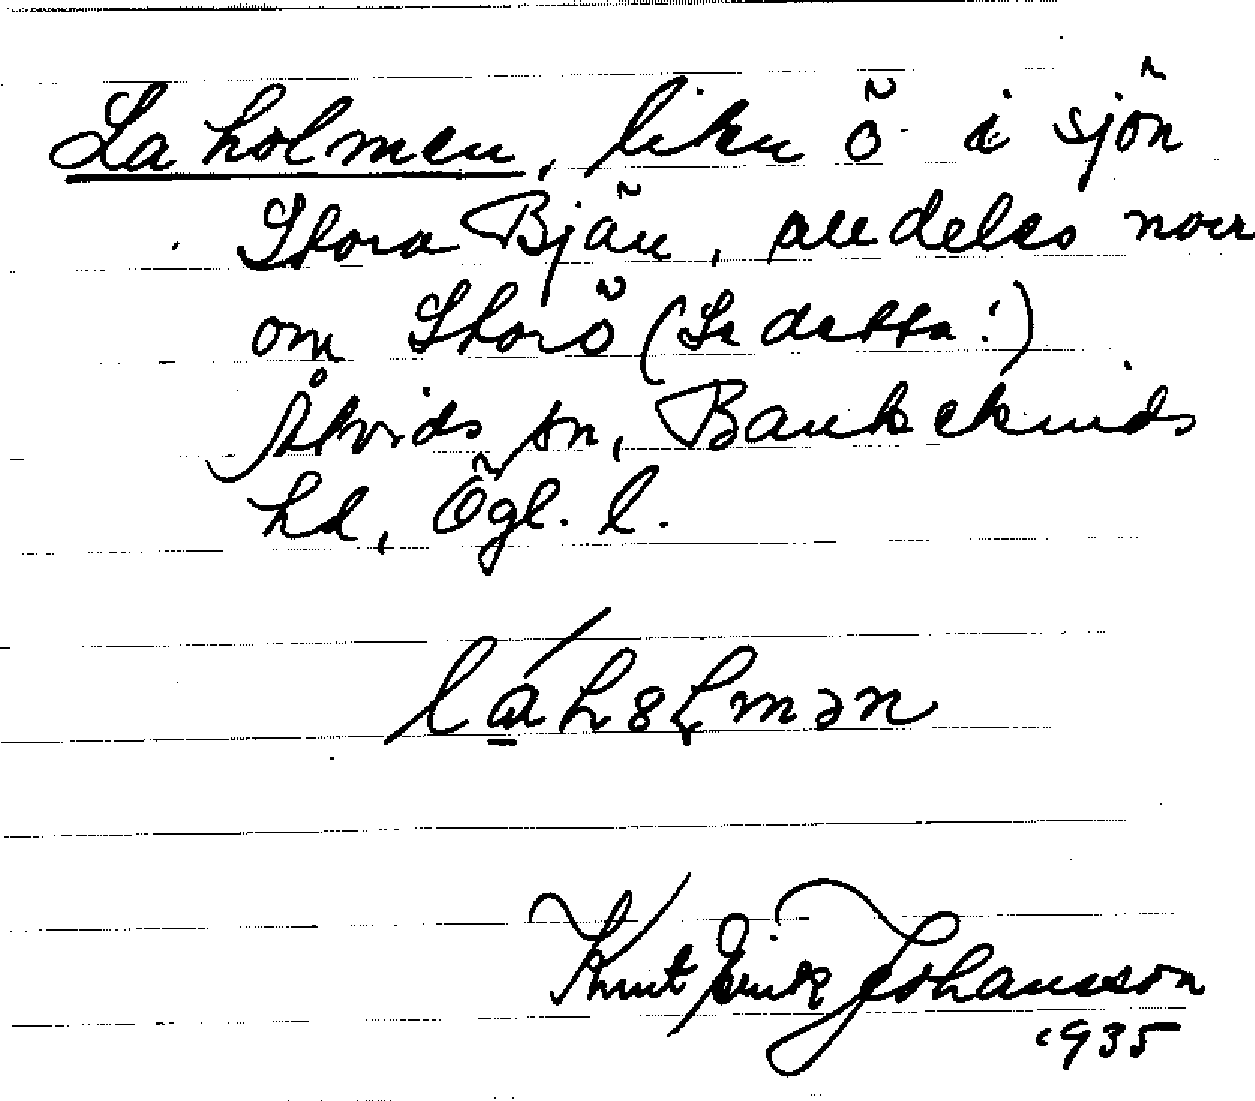 Laholmen, liten ö i sjön
Stora Bjän, alldeles norr
om Storö (Se detta!)
Åtvids sn, Bankekinds
hd, Ögl. l.
Knut Erik Johansson
1935